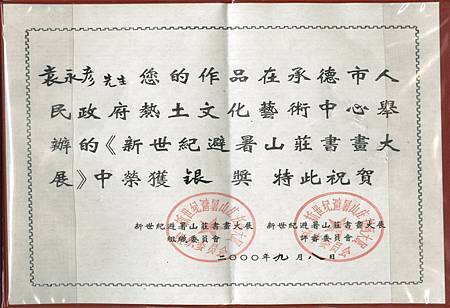 袁永彥先生您的作品在承德市人
民政府熱土文化藝術中心舉
辦的《新世紀避暑山莊書畫大
展》中榮獲銀獎特此祝賀
新世紀避暑山莊書畫大展 新世紀避暑山莊書畫大展
組織委員會 評審委員會
二000年九月八日